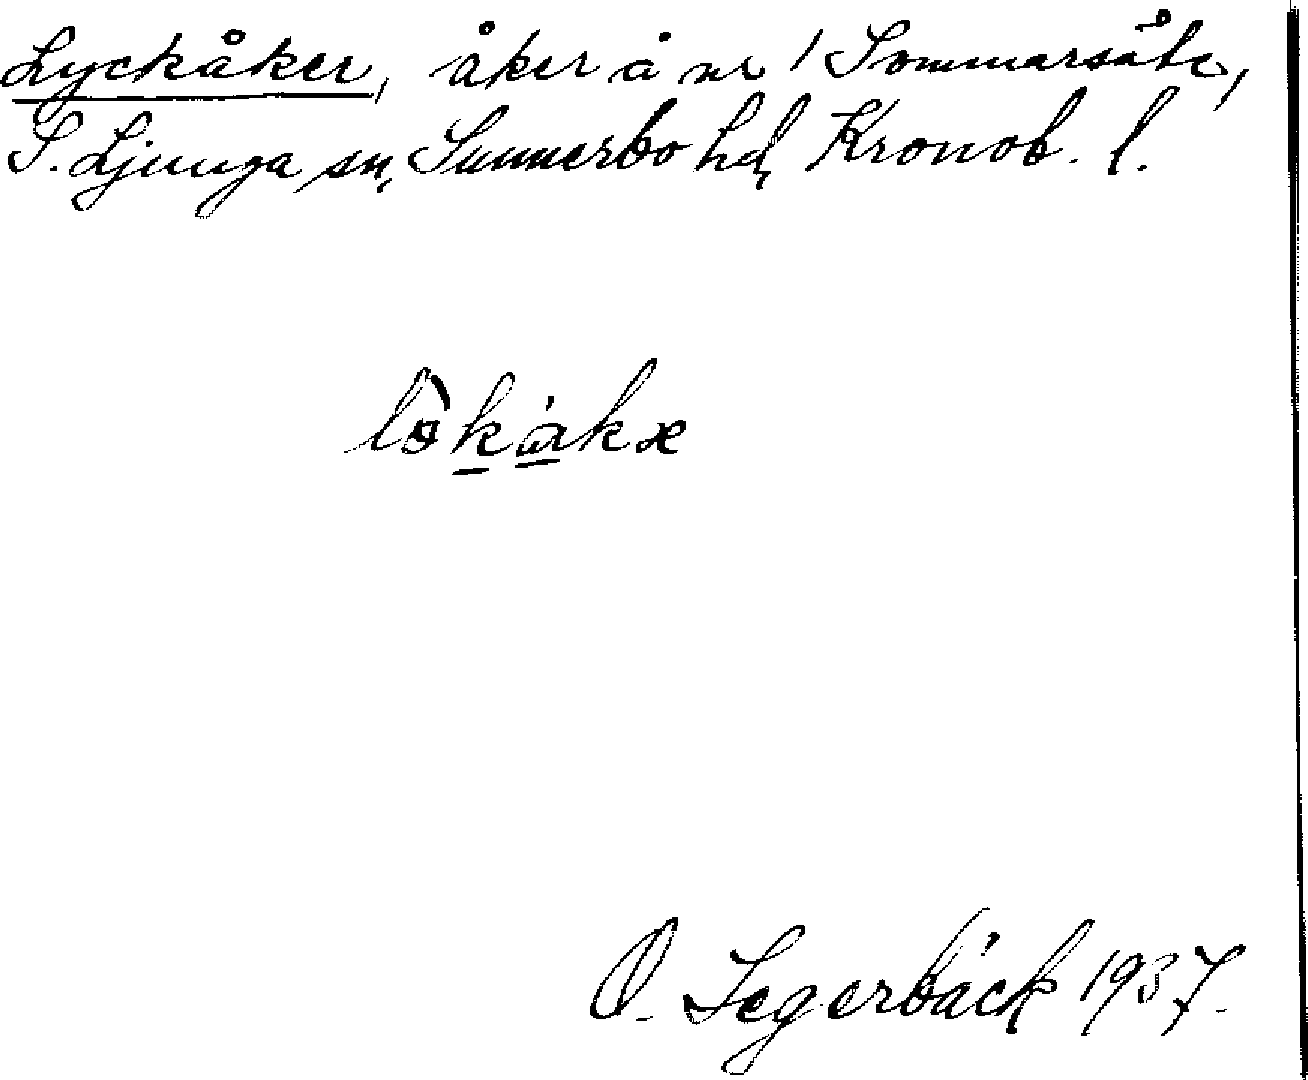 Lyckåker, åker å nr 1 Sommarsåte,
S. Ljunga sn, Sunnerbo hd, Kronob. l.
O. Segerbäck 1937.